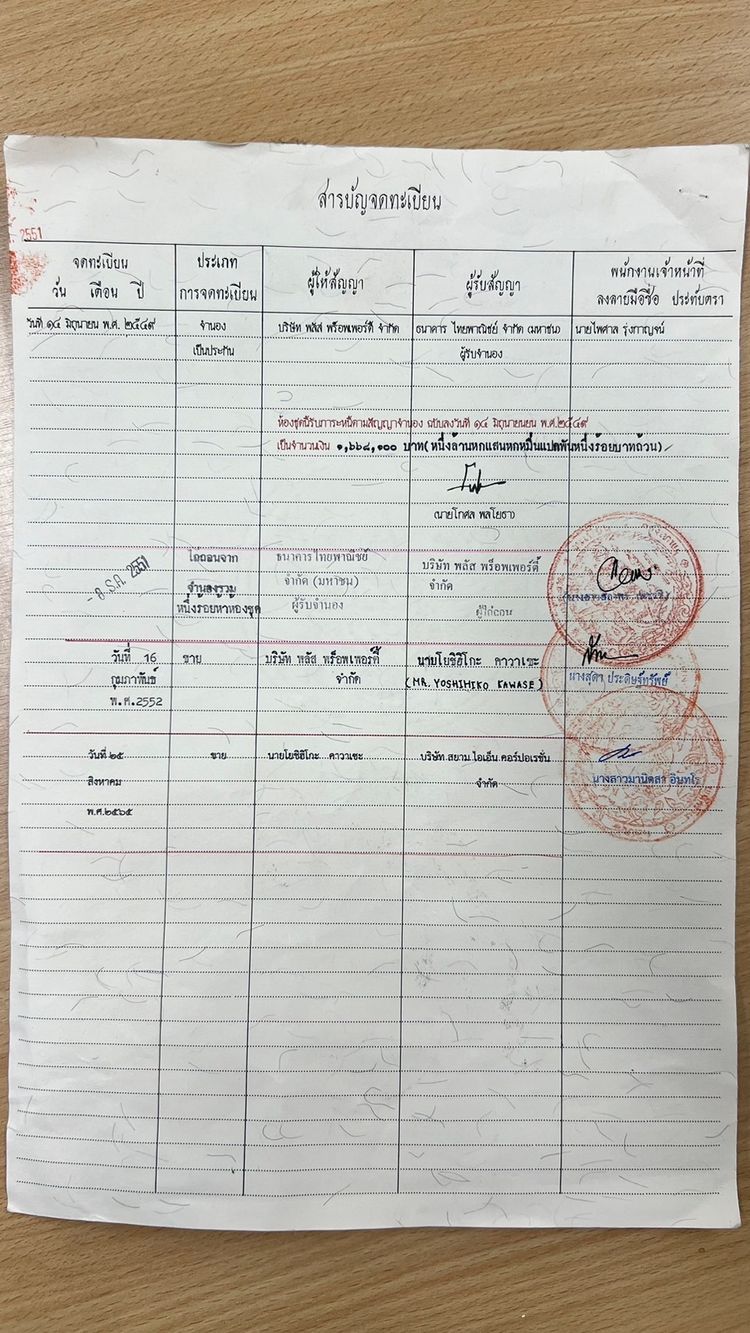 สารบัญจดทะเบียน
2551
จดทะเบียน
วัน เดือน ปี
ประเภท
การจดทะเบียน
ผู้ให้สัญญา
ผู้รับสัญญา
พนักงานเจ้าหน้าที่
ลงลายมือชื่อ ประทับตรา
วันที่ ๑๔ มิถุนายน พ.ศ. ๒๕๔๙ จำนอง บริษัท พลัส พร็อพเพอร์ตี้ จำกัด ธนาคาร ไทยพาณิชย์ จำกัด (มหาชน) นายไพศาล รุ่งกาญจน์
เป็นประกัน ผู้รับจำนอง
ห้องชุดนี้รับภาระหนี้ตามสัญญาจำนอง ฉบับลงวันที่ ๑๔ มิถุนายนยน พ.ศ.๒๕๔๙
เป็นจำนวนเงิน ๑,๖๖๘,๑๐๐ บาท(หนึ่งล้านหกแสนหกหมื่นแปดพันหนึ่งร้อยบาทถ้วน)
(นายโกศล พลโยธา)
- 8 ธ.ค. 2551
ไถ่ถอนจาก
จำนองรวม
หนึ่งร้อยห้าห้องชุด
ธนาคารไทยพาณิชย์
จำกัด (มหาชน)
ผู้รับจำนอง
บริษัท พลัส พร็อพเพอร์ตี้
จำกัด
ผู้ไถ่ถอน
วันที่ 16
กุมภาพันธ์
พ.ศ.2552
ขาย
บริษัท พลัส พร็อพเพอร์ตี้
จำกัด
นายโยชิฮิโกะ คาวาเซะ
(MR. YOSHIHIKO KAWASE)
นางสุดา ประดิษฐ์ทรัพย์
วันที่ ๒๕
สิงหาคม
พ.ศ.๒๕๖๕
ขาย
นายโยชิฮิโกะ คาวาเซะ
บริษัท สยาม ไอเอ็น คอร์ปอเรชั่น
จำกัด
นางสาวมานิตสา อินทโร